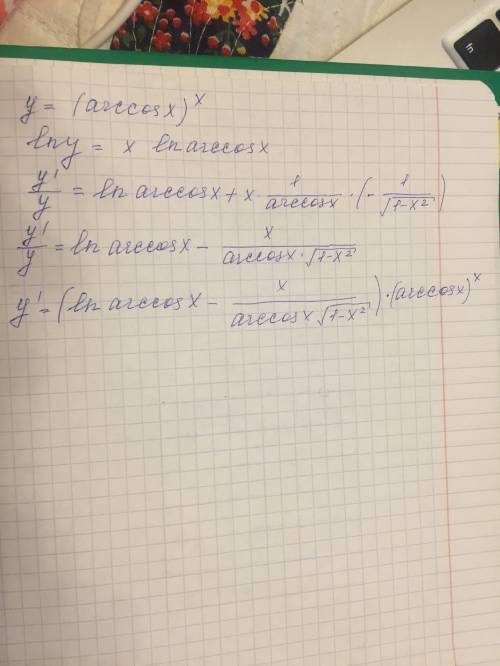 y = (arccosx)^x
lny = x lnarccosx
y'/y = ln arccosx + x · 1/arccosx · (- 1/√(1-x²))
y'/y = ln arccosx - x/(arccosx · √(1-x²))
y' = (ln arccosx - x/(arccosx √(1-x²))) · (arccosx)^x